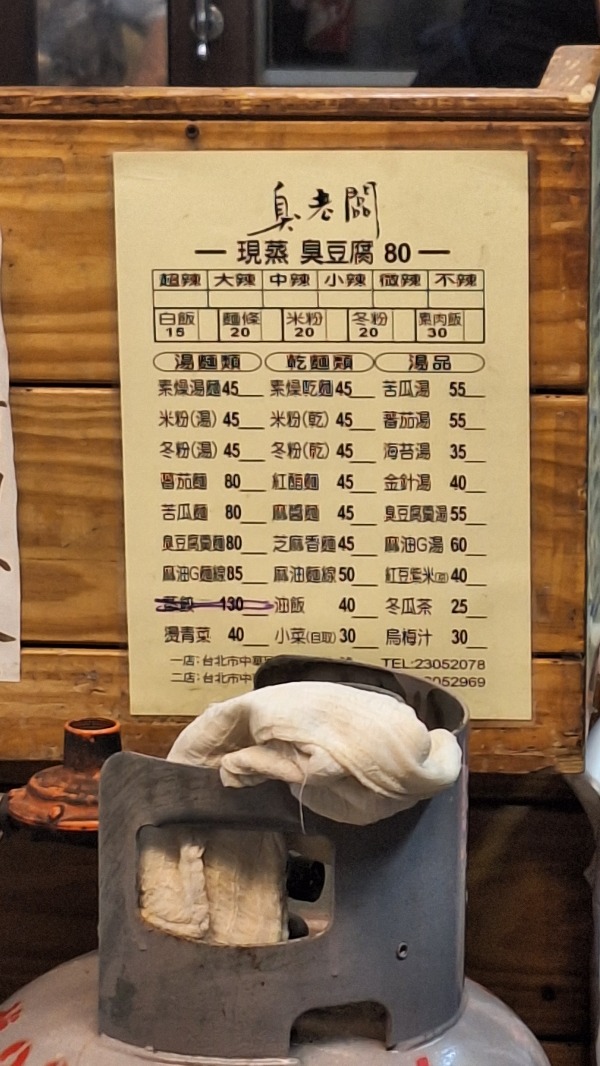 臭老闆
現蒸 臭豆腐 80
超辣 大辣 中辣 小辣 微辣 不辣
白飯 麵條 米粉 冬粉 素肉飯
15 20 20 20 30
湯麵類 乾麵類 湯品
素燥湯麵45 素燥乾麵45 苦瓜湯 55
米粉(湯) 45 米粉(乾) 45 蕃茄湯 55
冬粉(湯) 45 冬粉(乾) 45 海苔湯 35
蕃茄麵 80 紅醬麵 45 金針湯 40
苦瓜麵 80 麻醬麵 45 臭豆腐羹湯55
臭豆腐羹麵80 芝麻香麵45 麻油G湯 60
麻油G麵線85 麻油麵線50 紅豆紫米 40
130 油飯 40 冬瓜茶 25
燙青菜 40 小菜(自取) 30 烏梅汁 30
一店:台北市中華 TEL:23052078
二店:台北市中 052969